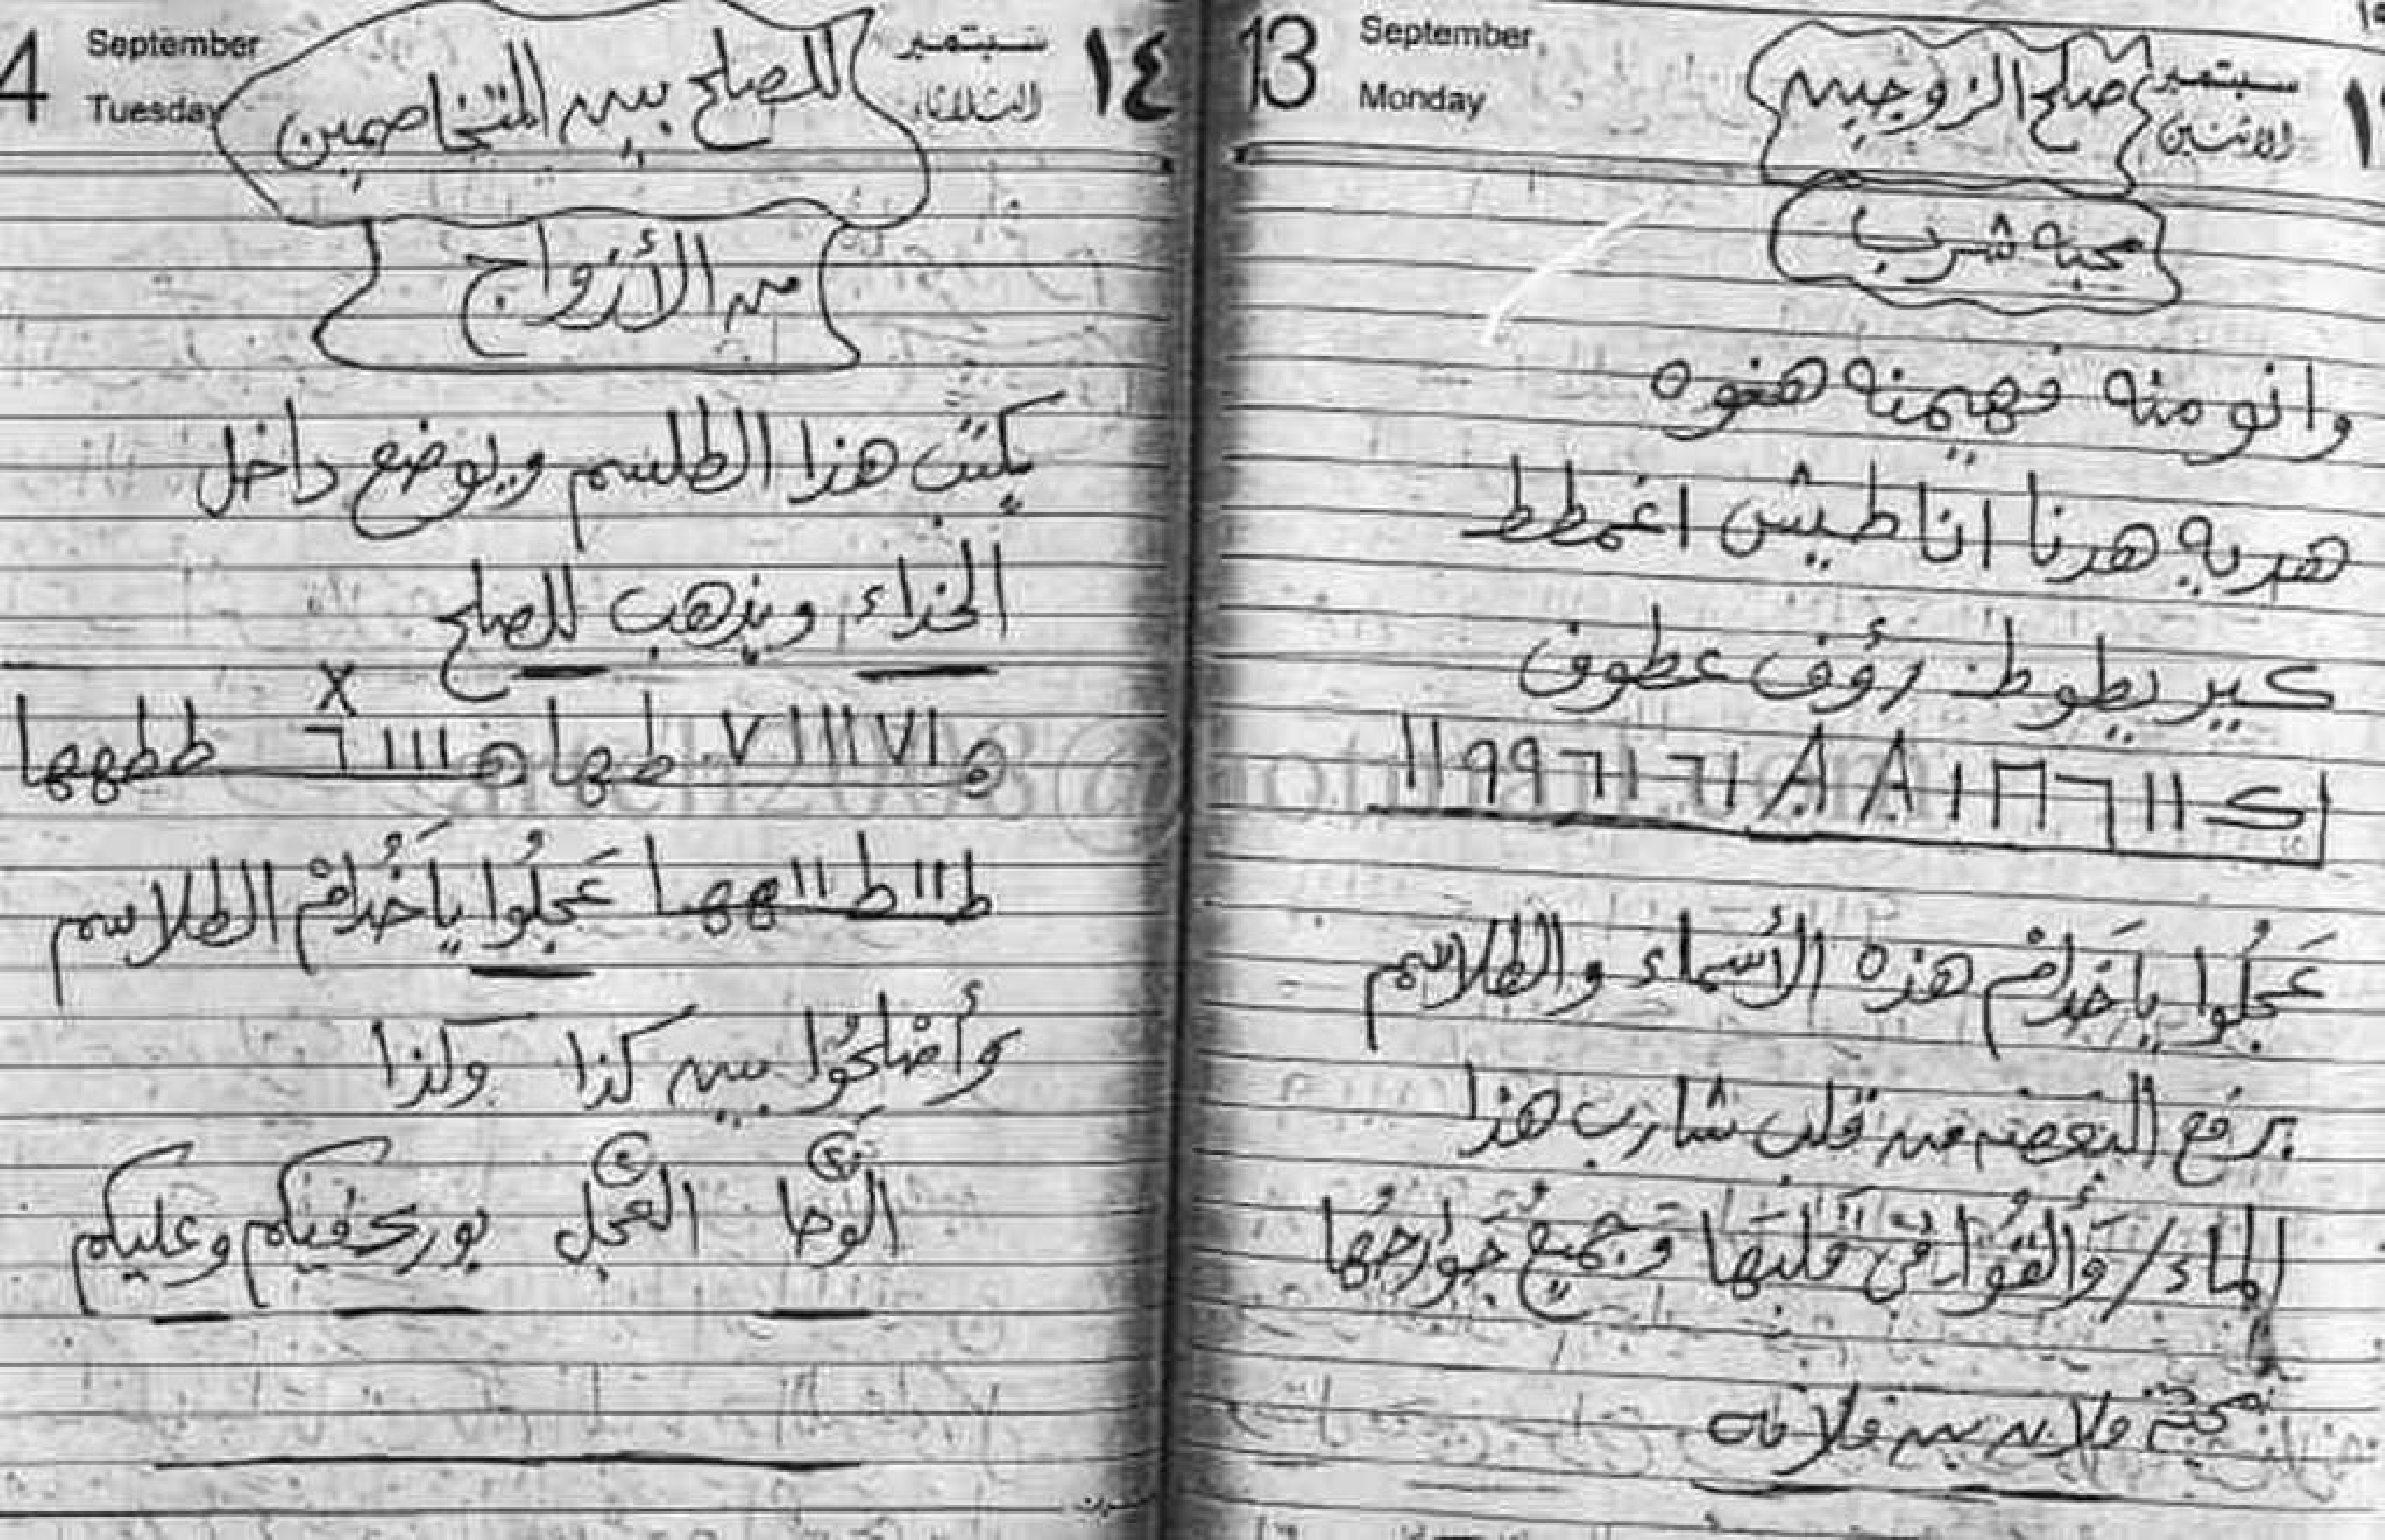 13
September
Monday
سبتمبر
الاثنين
صلح الزوجين
محبه شرب
وانو منه فهيمنه هغوه
هدبه هدنا اناطيش اغمطط
كير يطوط رؤف عطوف
ك ١١ ٦ ١ ١ ٦ ١ ٦ ٩ ٩ ١١
عَجلُوا ياخَدامْ هذه الأسماء والطلاسم
برفع البغض من قلب شارب هذا
الماء / وَألقُوا في قلبَها وَجميع جَوارحُها
محبة فلان بن فلانه
4
September
Tuesday
سبتمبر
الثلاثاء
١٤
للصلح بين المتخاصمين
من الأزواج
يكتب هذا الطلسم ويوضع داخل
الحذاء ويذهب للصلح
X
١٧١١١٧ طها ه ١١١ ٦ ططهها
ط ١١ ط ١١ ههها عَجلُوا ياخُدامْ الطلاسم
وأصْلحُوا بين كذا وكذا
الوحا العجل بورك فيكم وعليكم